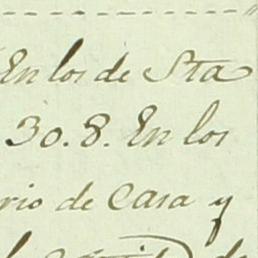 En los de Sta
30. 8. En los
rio de Casa y